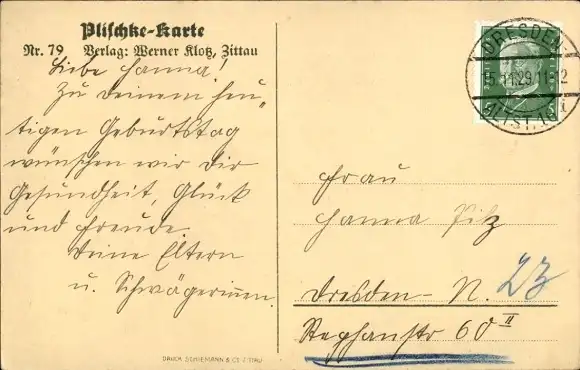 Plischke-Karte
Nr. 79 Verlag: Werner Klotz, Zittau
Liebe Hanna!
Zu Deinem heu„
tigen Geburtstag
wünschen wir Dir
Gesundheit, Glück
und Freude
Deine Eltern
u. Schwägerinnen.
DRESDEN-
15.11.29.11-12
ALTST. 16
Frau
Hanna Pilz
Dresden-N. 23
Stephanstr 60 II
DRUCK SCHIEMANN & CO. ZITTAU